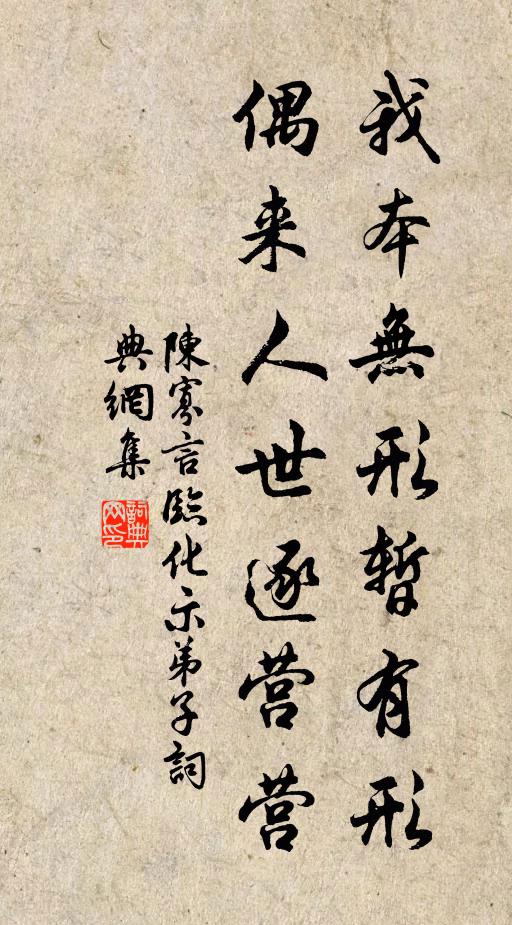 我本無形暫有形
偶来人世逐营营
陳寡言臨化示弟子詞
典網集
詞典网印